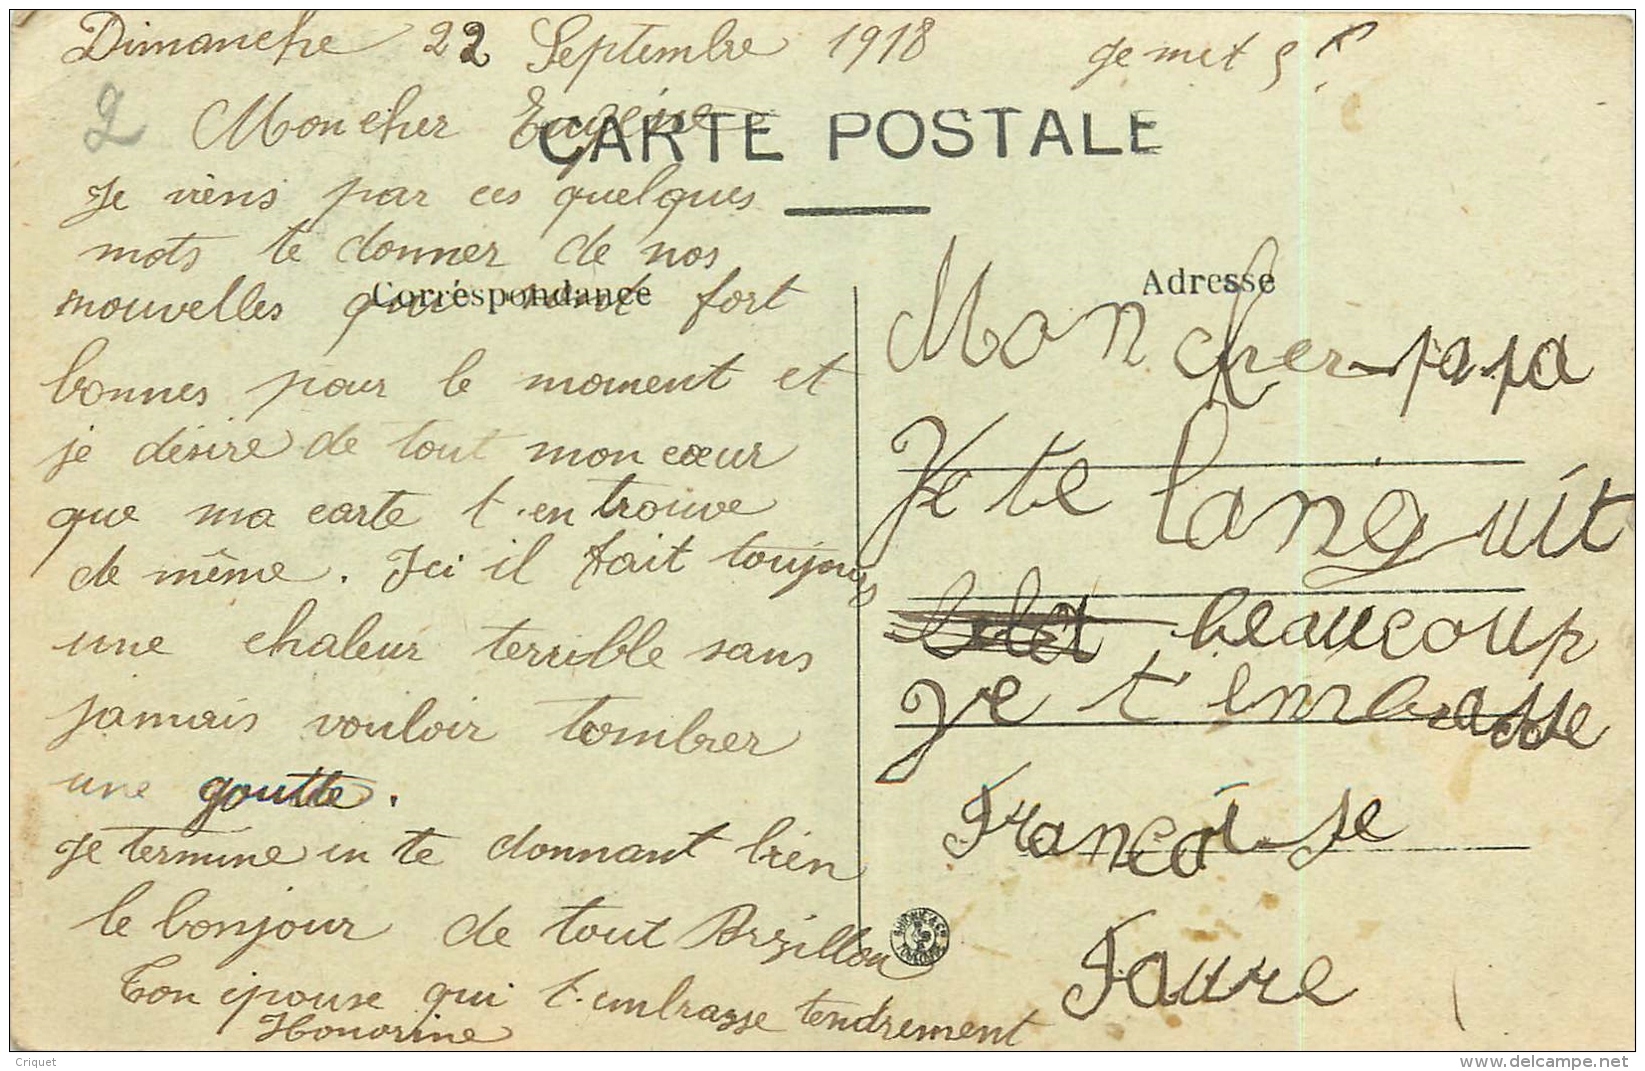 Dimanche 22 Septembre 1918 je met 5 f
2
Mon cher Eugène
CARTE POSTALE
Je viens par ces quelques
mots te donner de nos
nouvelles qui sont fort
Correspondance
bonnes pour le moment et
je désire de tout mon cœur
que ma carte t.en trouve
de même. Ici il fait toujours
une chaleur terrible sans
jamais vouloir tomber
une goutte.
Je termine en te donnant bien
le bonjour de tout Arzillon
Ton épouse qui t.embrasse tendrement
Honorine
Adresse
Mon cher papa
Je te languit
beaucoup
Je t'embrasse
Françoise
Faure
Criquet
www.delcampe.net